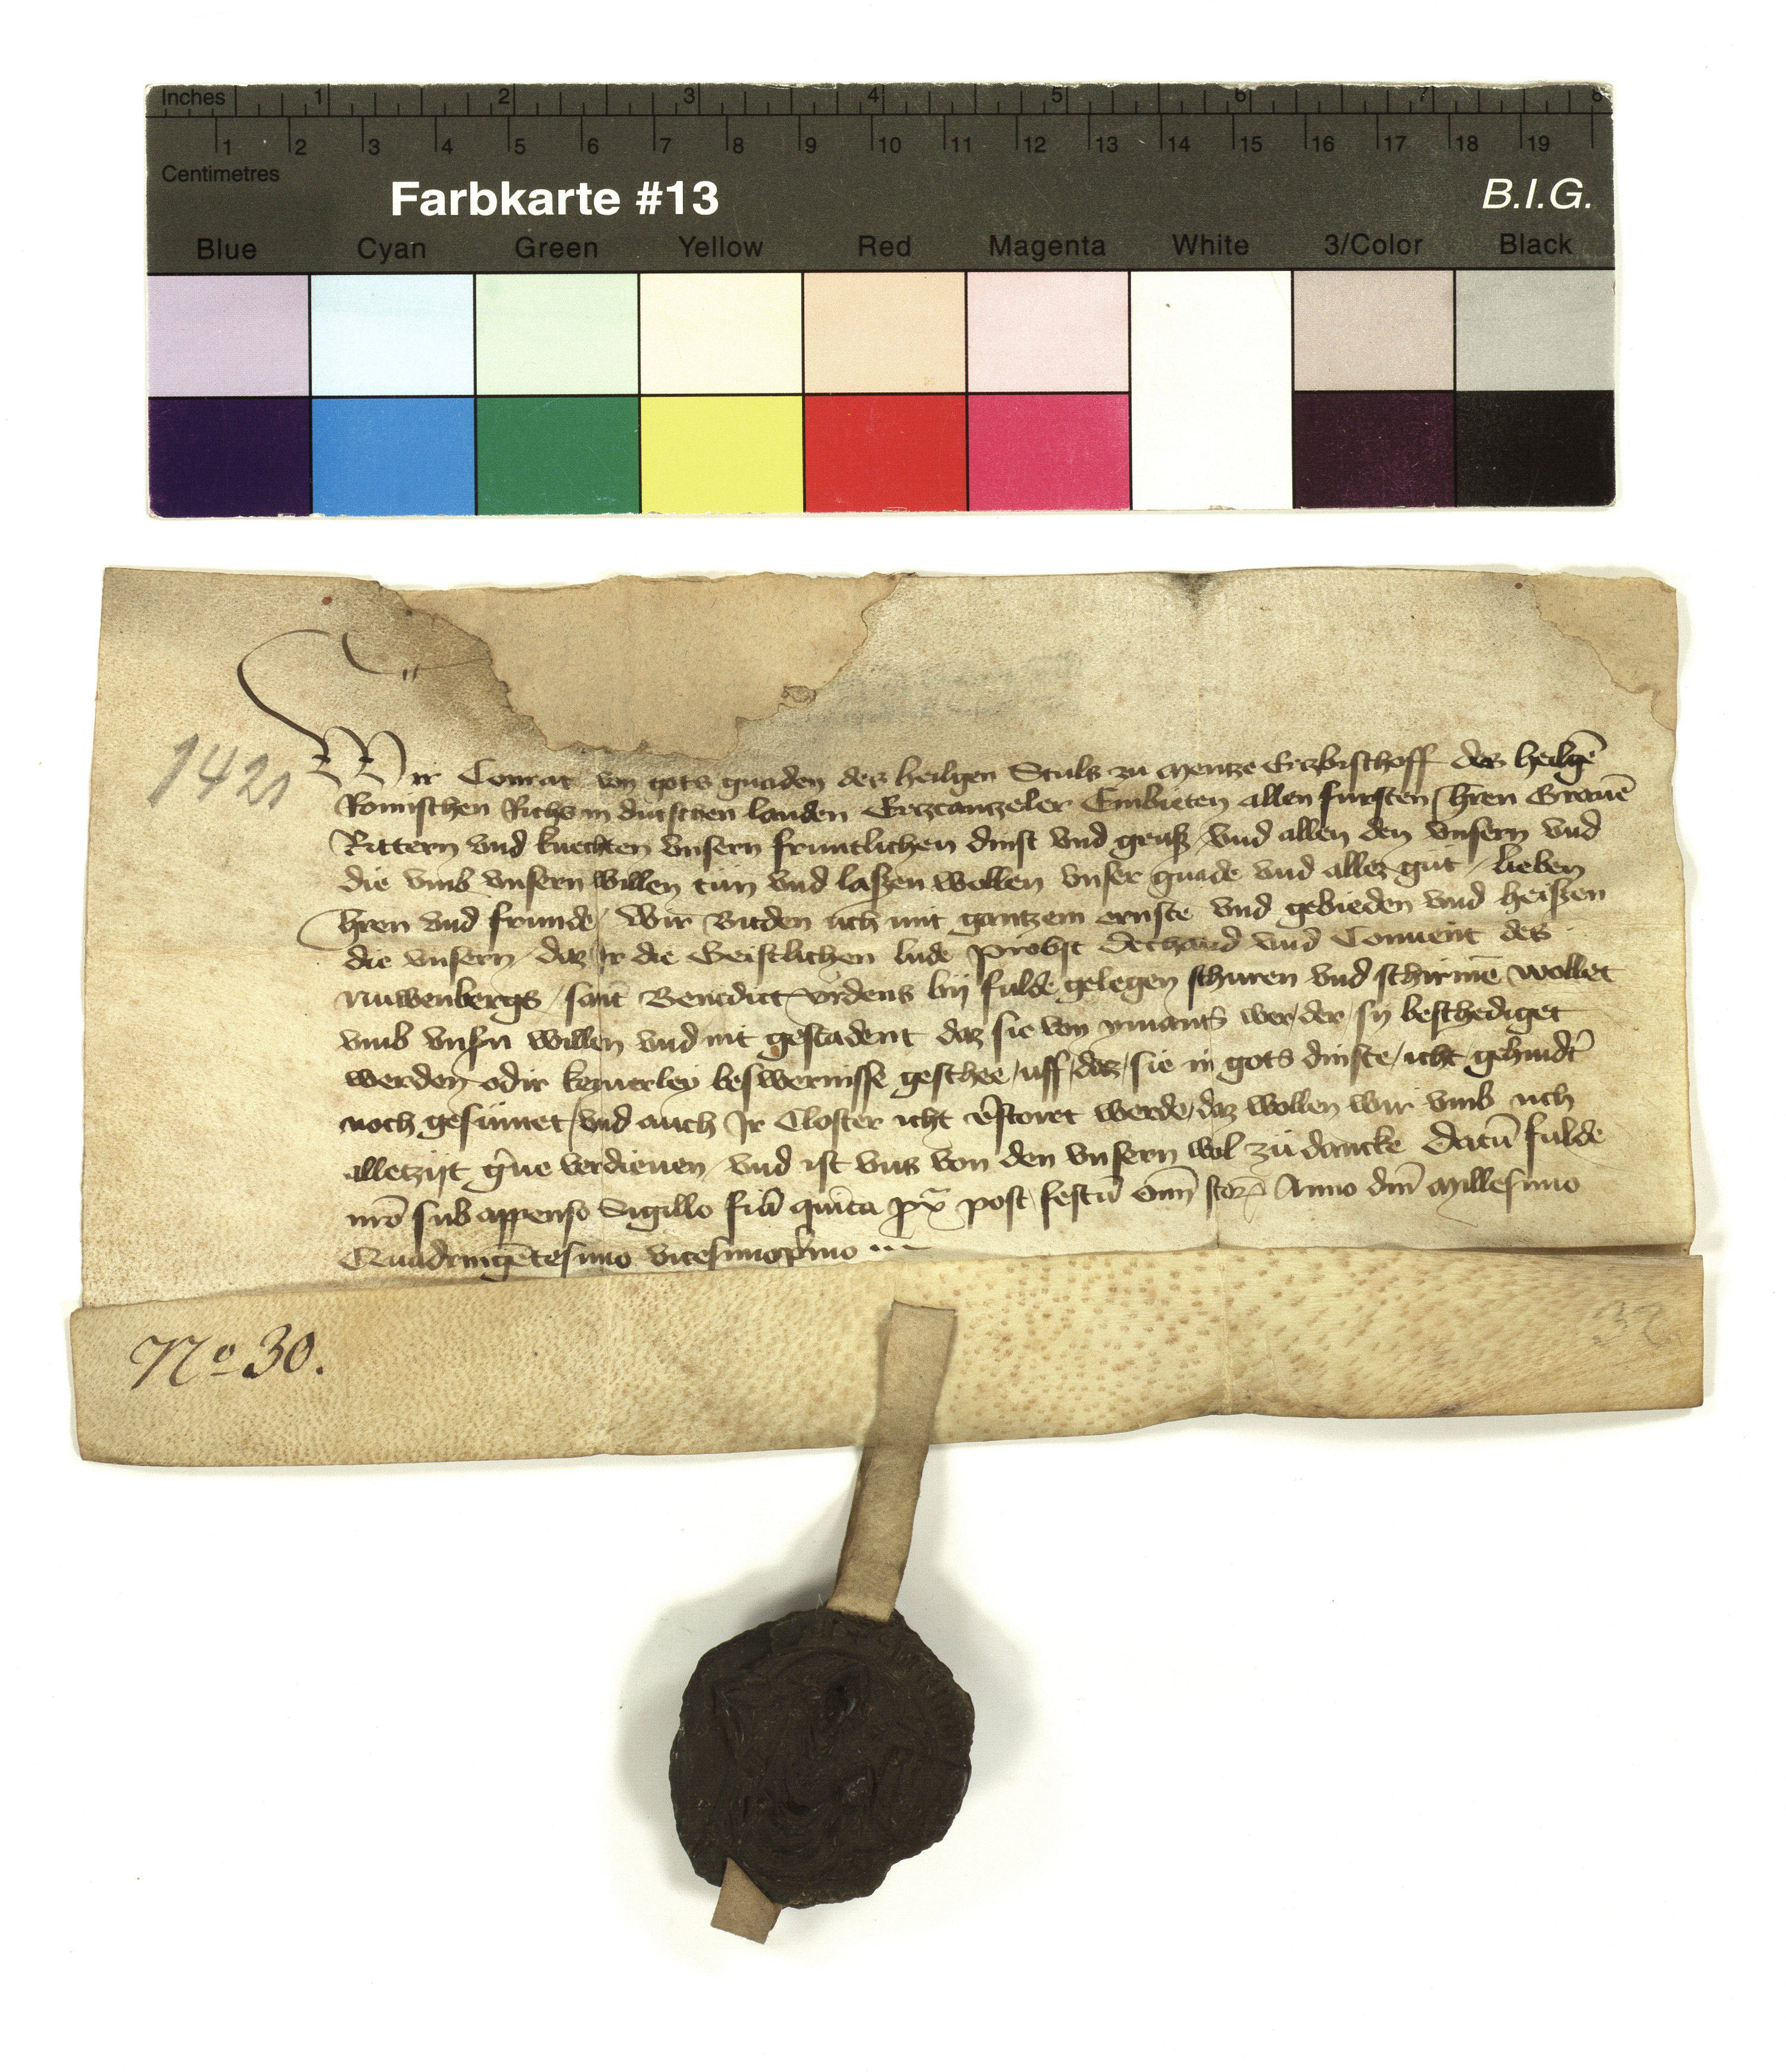 Inches 1 2 3 4 5 6 7 8
1 2 3 4 5 6 7 8 9 10 11 12 13 14 15 16 17 18 19
Centimetres
Farbkarte #13 B.I.G.
Blue Cyan Green Yellow Red Magenta White 3/Color Black
1421
Wir Conrat von gots gnaden des heilgen Stuls zu Mentze Erzbischoff des heilgē
Romischen Richs in dutschen landen Erczcanczeler Embieten allen fursten hren Grauē
Rittern vnd knechten vnsern fruntlichen dinst vnd gruß / vnd allen den vnsern vnd
die vmb vnsern willen tun vnd laßen wollen vnser gnade vnd allez gut / lieben
hren vnd frunde / Wir Bitden uch mit gantzem ernste vnd gebieden vnd heißen
die vnsern / daz Ir die Geistlichen lude probst Dechand vnd Conuent des
Nuwenbergs / sant Benedict ordens bij fulde gelegen schuren vnd schirmē wollet
vmb vnsn willen vnd nit gestadent daz sie von ymants wer / der / sij beschediget
werden odir keynerley beswernisse geschee / uff / daz / sie in gots dinste / icht / gehindt
noch gesumet / vnd auch Ir Closter icht vstoret werde / daz wollen wir vmb uch
alletzijt gne verdienen / vnd ist vns von den vnsern wol zu dancke Datū fulde
nrō sub appenso Sigillo fia quīta px post festū oīm scōrȝ Anno dnī Millesimo
Quadringētesimo vicesimoprimo ...
No 30.
32